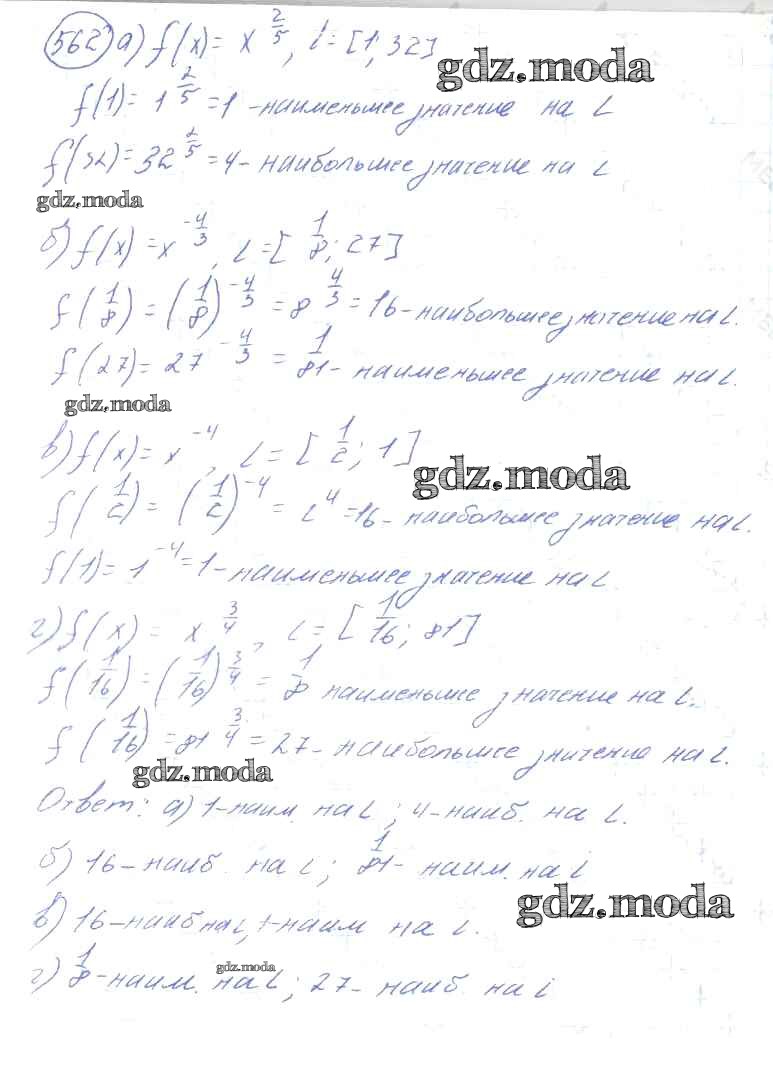 562 а) f(x) = x^{2/5}, L = [1; 32]
gdz.moda
f(1) = 1^{2/5} = 1 - наименьшее значение на L
f(32) = 32^{2/5} = 4 - наибольшее значение на L
gdz.moda
б) f(x) = x^{-4/3}, L = [1/8; 27]
f(1/8) = (1/8)^{-4/3} = 8^{4/3} = 16 - наибольшее значение на L.
f(27) = 27^{-4/3} = 1/81 - наименьшее значение на L.
gdz.moda
в) f(x) = x^{-4}, L = [1/2; 1]
gdz.moda
f(1/2) = (1/2)^{-4} = 2^4 = 16 - наибольшее значение на L.
f(1) = 1^{-4} = 1 - наименьшее значение на L.
г) f(x) = x^{3/4}, L = [1/16; 81]
f(1/16) = (1/16)^{3/4} = 1/8 наименьшее значение на L.
f(1/16) = 81^{3/4} = 27 - наибольшее значение на L.
gdz.moda
Ответ: а) 1 - наим. на L; 4 - наиб. на L.
б) 16 - наиб. на L; 1/81 - наим. на L
gdz.moda
в) 16 - наиб на L, 1 - наим на L.
gdz.moda
г) 1/8 - наим. на L; 27 - наиб. на L